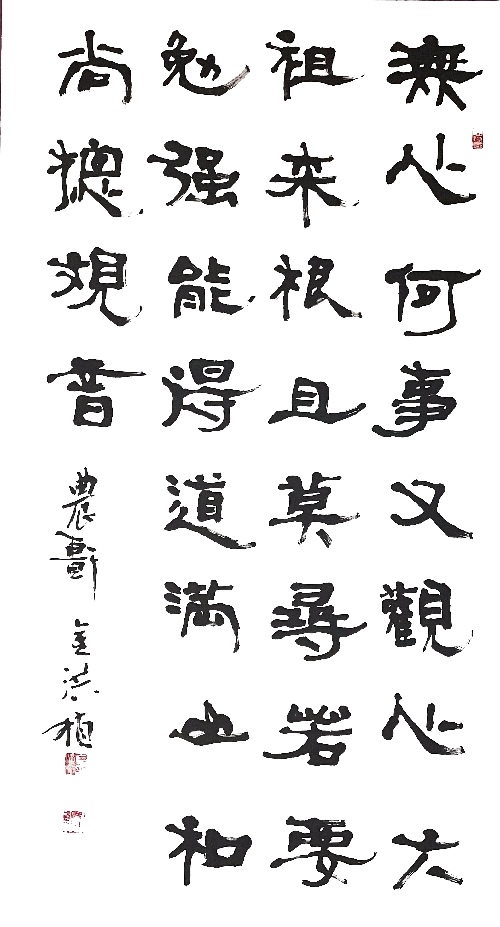 無心何事又觀心大
祖来根且莫尋若要
勉强能得道滿山和
尚摠覌音
農軒 金洪植